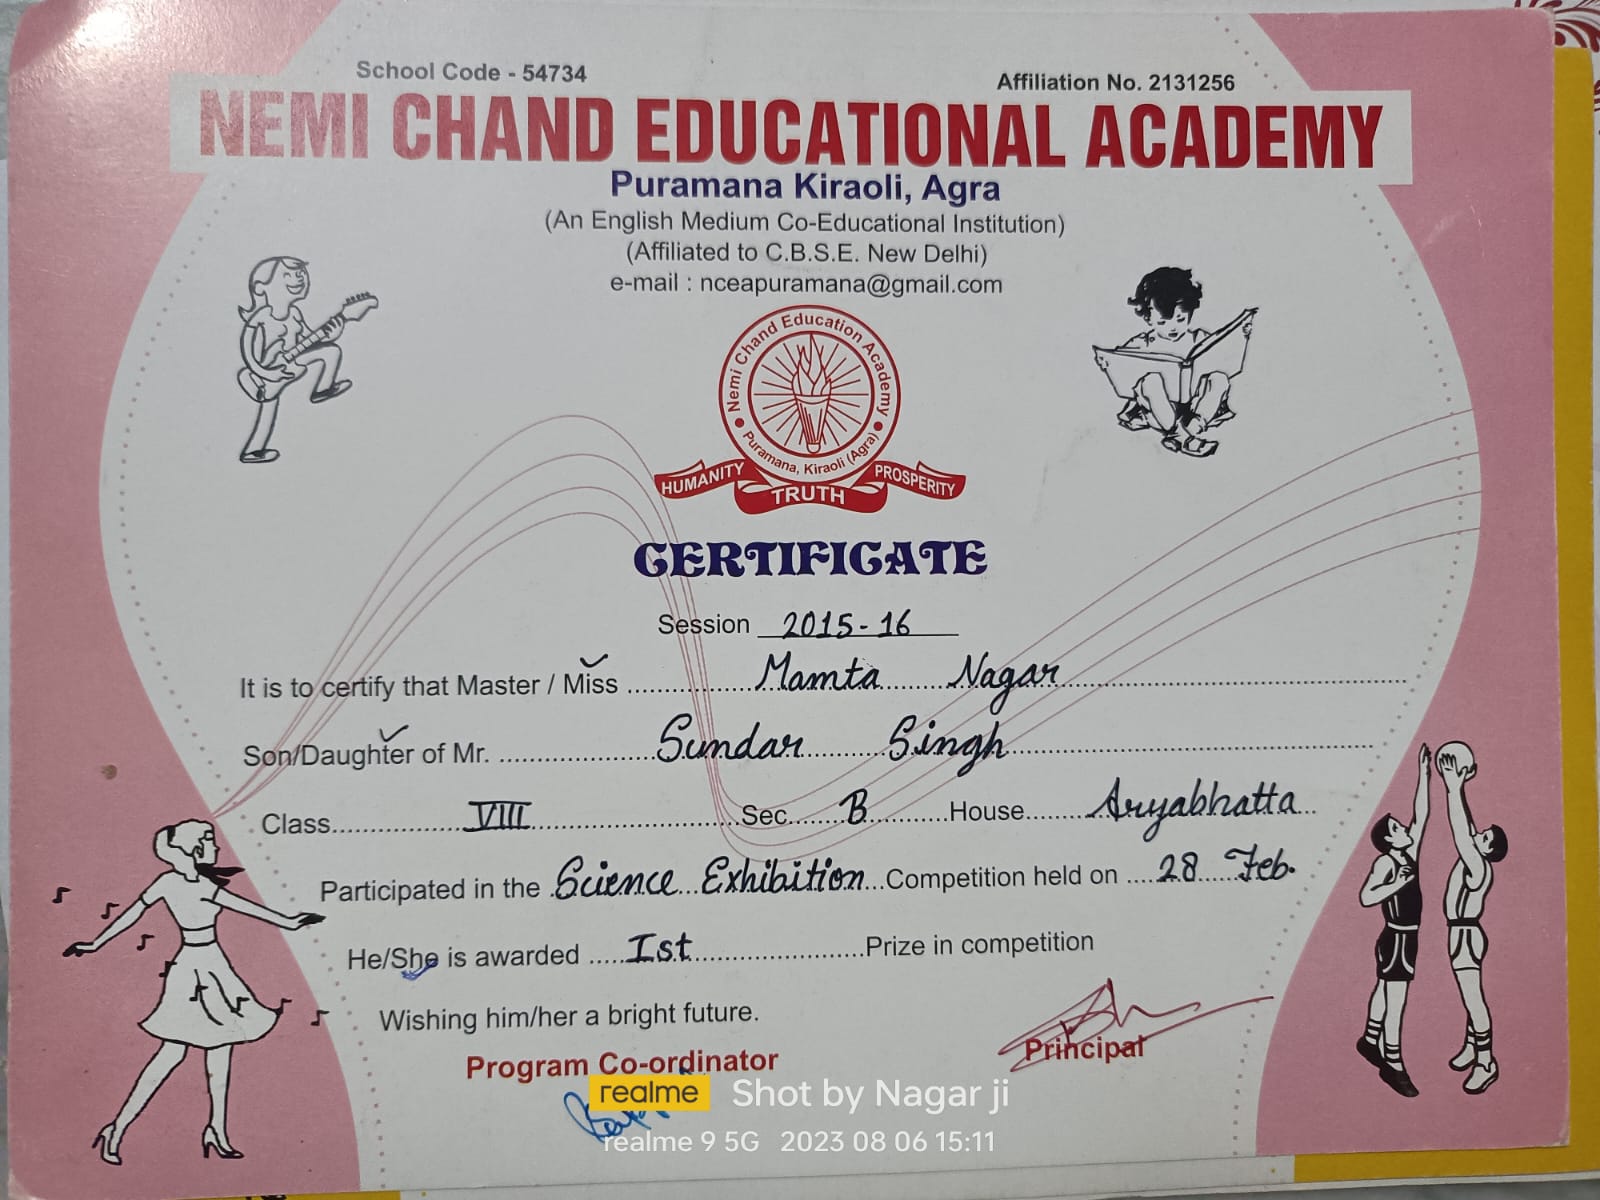 School Code - 54734
Affiliation No. 2131256
NEMI CHAND EDUCATIONAL ACADEMY
Puramana Kiraoli, Agra
(An English Medium Co-Educational Institution)
(Affiliated to C.B.S.E. New Delhi)
e-mail : nceapuramana@gmail.com
Nemi Chand Education Academy
Puramana, Kiraoli (Agra)
HUMANITY TRUTH PROSPERITY
CERTIFICATE
Session 2015-16
It is to certify that Master / Miss Mamta Nagar
Son/Daughter of Mr. Sundar Singh
Class VIII Sec. B House Aryabhatta
Participated in the Science Exhibition Competition held on 28 Feb.
He/She is awarded Ist Prize in competition
Wishing him/her a bright future.
Program Co-ordinator
Principal
realme Shot by Nagar ji
realme 9 5G 2023 08 06 15:11